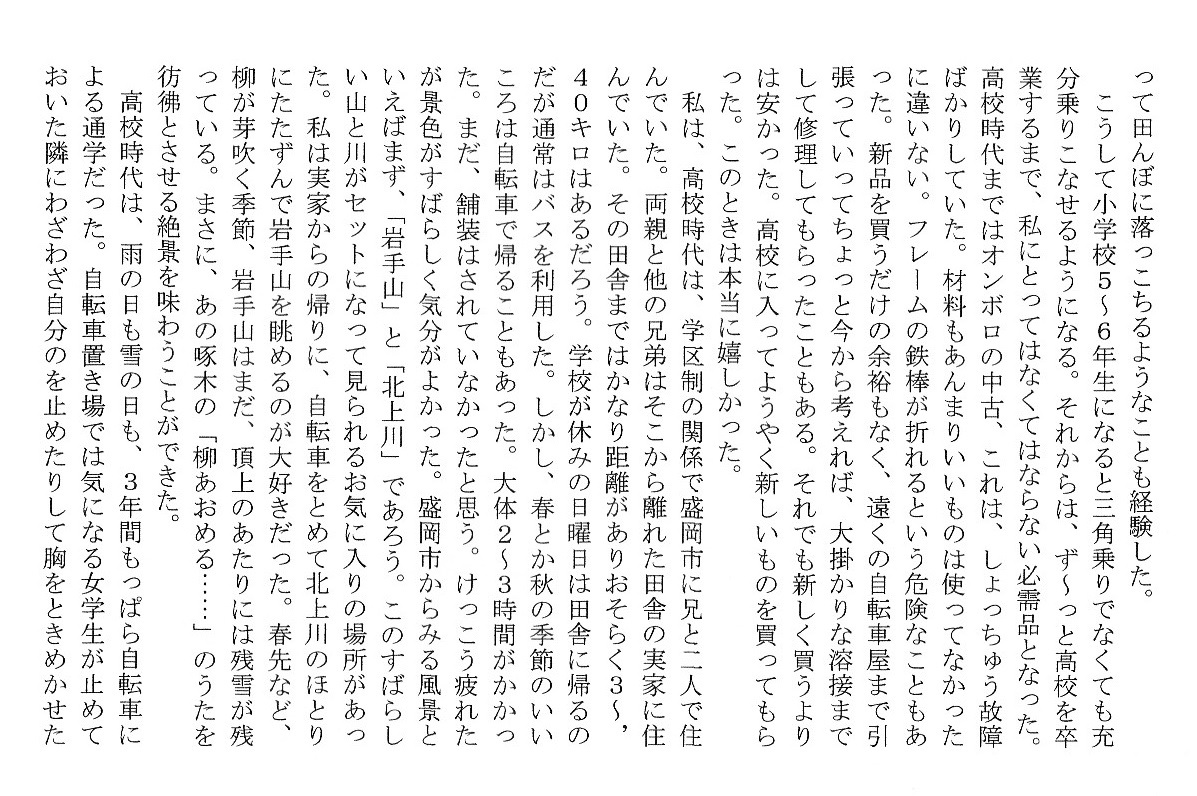 って田んぼに落っこちるようなことも経験した。
　こうして小学校５～６年生になると三角乗りでなくても充
分乗りこなせるようになる。それからは、ず～っと高校を卒
業するまで、私にとってはなくてはならない必需品となった。
高校時代まではオンボロの中古、これは、しょっちゅう故障
ばかりしていた。材料もあんまりいいものは使ってなかった
に違いない。フレームの鉄棒が折れるという危険なこともあ
った。新品を買うだけの余裕もなく、遠くの自転車屋まで引
張っていってちょっと今から考えれば、大掛かりな溶接まで
して修理してもらったこともある。それでも新しく買うより
は安かった。高校に入ってようやく新しいものを買ってもら
った。このときは本当に嬉しかった。
　私は、高校時代は、学区制の関係で盛岡市に兄と二人で住
んでいた。両親と他の兄弟はそこから離れた田舎の実家に住
んでいた。その田舎まではかなり距離がありおそらく３～，
４０キロはあるだろう。学校が休みの日曜日は田舎に帰るの
だが通常はバスを利用した。しかし、春とか秋の季節のいい
ころは自転車で帰ることもあった。大体２～３時間がかかっ
た。まだ、舗装はされていなかったと思う。けっこう疲れた
が景色がすばらしく気分がよかった。盛岡市からみる風景と
いえばまず、「岩手山」と「北上川」であろう。このすばらし
い山と川がセットになって見られるお気に入りの場所があっ
た。私は実家からの帰りに、自転車をとめて北上川のほとり
にたたずんで岩手山を眺めるのが大好きだった。春先など、
柳が芽吹く季節、岩手山はまだ、頂上のあたりには残雪が残
っている。まさに、あの啄木の「柳あおめる……」のうたを
彷彿とさせる絶景を味わうことができた。
　高校時代は、雨の日も雪の日も、３年間もっぱら自転車に
よる通学だった。自転車置き場では気になる女学生が止めて
おいた隣にわざわざ自分のを止めたりして胸をときめかせた